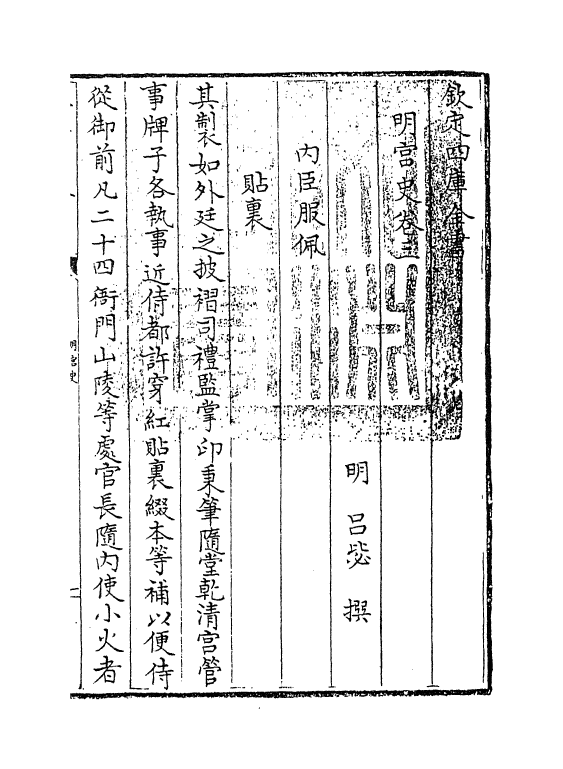 欽定四庫全書
明宮史卷三
明 吕毖 撰
内臣服佩
貼裏
其製如外廷之披褶司禮監掌印秉筆隨堂乾清宮管
事牌子各執事近侍都許穿紅貼裏綴本等補以便侍
從御前凡二十四衙門山陵等處官長隨内使小火者
明宮史